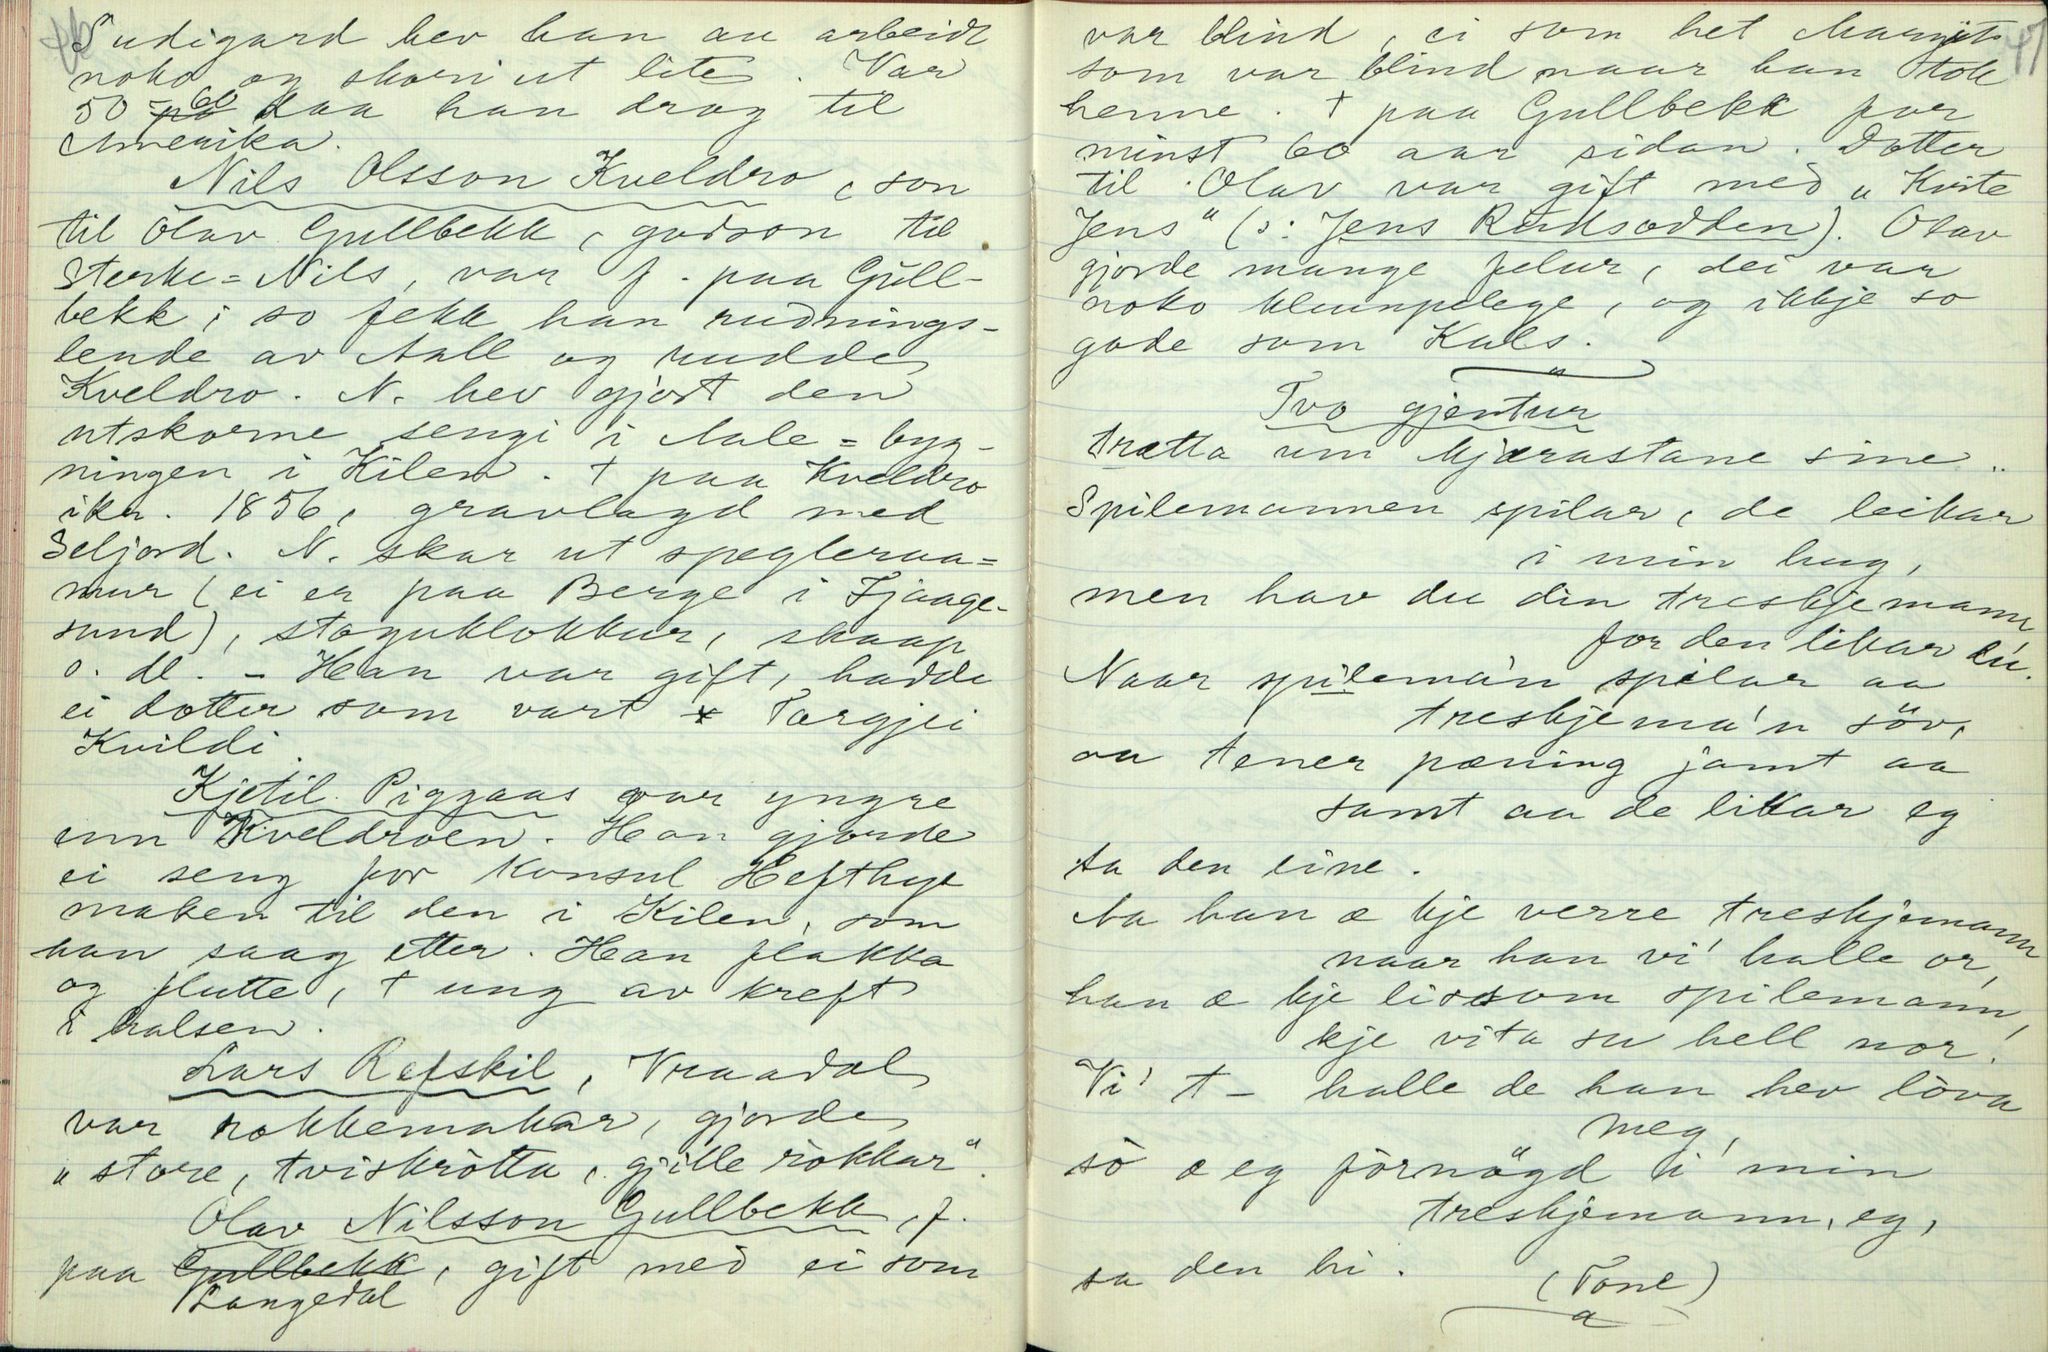 46
Sudigard hev han au arbeidt
noko og skori ut lite. Var
50-60 daa han drog til
Amerika.
Nils Olsson Kveldro, son
til Olav Gullbekk, godson til
Sterke=Nils, var f. paa Gull-
bekk; so fekk han rudnings-
lende av Aall og rudde
Kveldro. N. hev gjort den
utskorne sengi i Aale=byg-
ningen i Kilen. † paa Kveldro
ikr. 1856, gravlagd med
Seljord. N. skar ut spegleraa=
mur (ei er paa Berge i Fjaage-
sund), stoguklokkur, skaap
o. dl. - Han var gift, hadde
ei dotter som vart * Torgjei
Kvildi.
Kjetil Piggaas var yngre
enn Kveldroen. Han gjorde
ei seng for konsul Hefthye
maken til den i Kilen, som
han saag etter. Han flakka
og flutte, † ung av kreft
i halsen.
Lars Refskil, Vraadal
var rokkemakar, gjorde
"store, tviskròtta, gjilde ròkkar".
Olav Nilsson Gullbekk, f.
paa Gullbekk, gift med ei som
Langedal
47
var blind, ei som het Margit
som var blind naar han tok
henne. † paa Gullbekk for
minst 60 aar sidan. Dotter
til Olav var gift med "Kvite
Jens" (ɔ: Jens Rukksodden). Olav
gjorde mange felur, dei var
noko klumpelege, og ikkje so
gode som Kals.
Tvo gjentur
trætta um kjærastane sine..
Spilemannen spilar, de leikar
i min hug,
men hav du din treskjemann
for den likar du.
Naar spilemà'n spelar aa
treskjema'n söv,
aa tener pæning jamt aa
samt aa de likar eg
sa den eine.
Aa han æ kje verre treskjemann
naar han vi' halle or,
han æ kje lissom spilemann,
kje vita su hell nor.
Vi' t- halle de han hev lova
meg,
sò æ eg fòrnögd i' min
treskjemann, eg,
sa den hi.
(Tone)